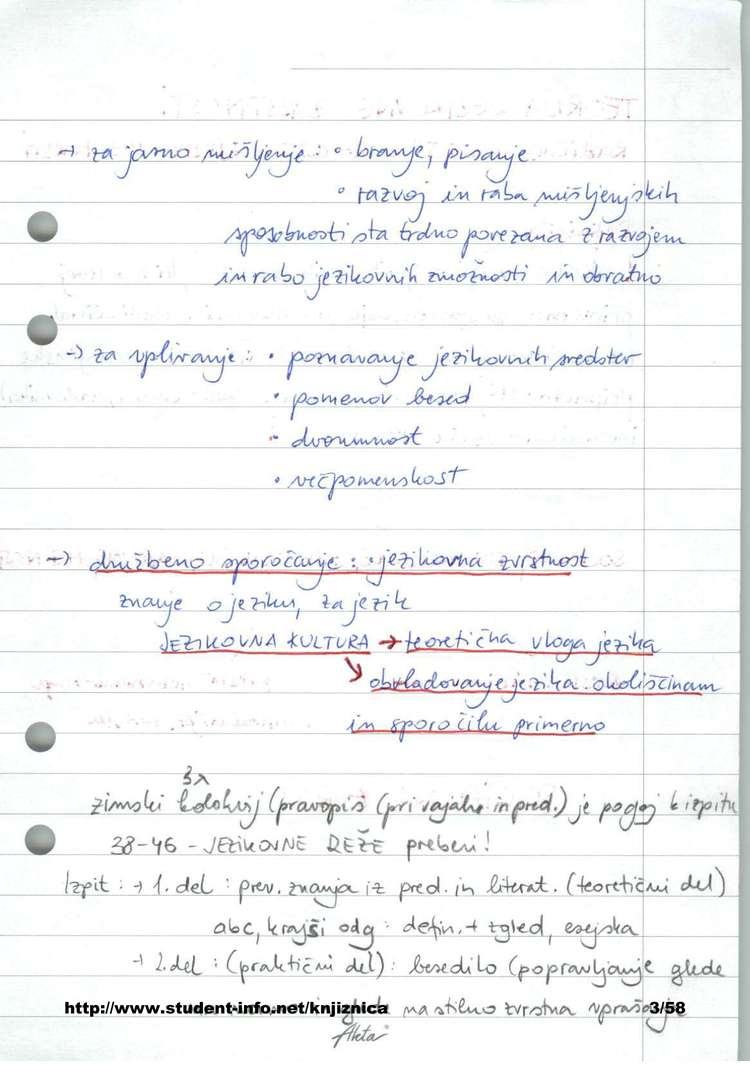 → za jasno mišljenje : • branje, pisanje
• razvoj in raba mišljenjskih
sposobnosti sta trdno povezana z razvojem
in rabo jezikovnih zmožnosti in obratno
→ za vplivanje : • poznavanje jezikovnih sredstev
• pomenov besed
• dvoumnost
• večpomenskost
→ družbeno sporočanje : • jezikovna zvrstnost
znanje o jeziku, za jezik
JEZIKOVNA KULTURA → teoretična vloga jezika
↘ obvladovanje jezika okoliščinam
in sporočilu primerno
3x
zimski kolokvij (pravopis (pri vajah in pred.) je pogoj k izpitu
38-46 - JEZIKOVNE REŽE preberi!
Izpit : → 1. del : prev. znanja iz pred. in literat. (teoretični del)
abc, krajši odg : defin. + zgled, esejska
→ 2. del : (praktični del) : besedilo (popravljanje glede
na stilno zvrstna vprašanja
http://www.student-info.net/knjiznica 3/58
Akta